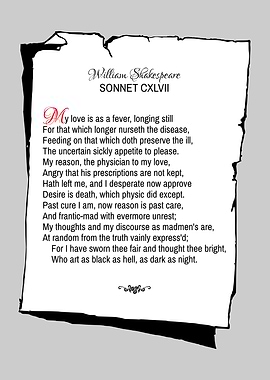 William Shakespeare
SONNET CXLVII
My love is as a fever, longing still
For that which longer nurseth the disease,
Feeding on that which doth preserve the ill,
The uncertain sickly appetite to please.
My reason, the physician to my love,
Angry that his prescriptions are not kept,
Hath left me, and I desperate now approve
Desire is death, which physic did except.
Past cure I am, now reason is past care,
And frantic-mad with evermore unrest;
My thoughts and my discourse as madmen's are,
At random from the truth vainly express'd;
For I have sworn thee fair and thought thee bright,
Who art as black as hell, as dark as night.